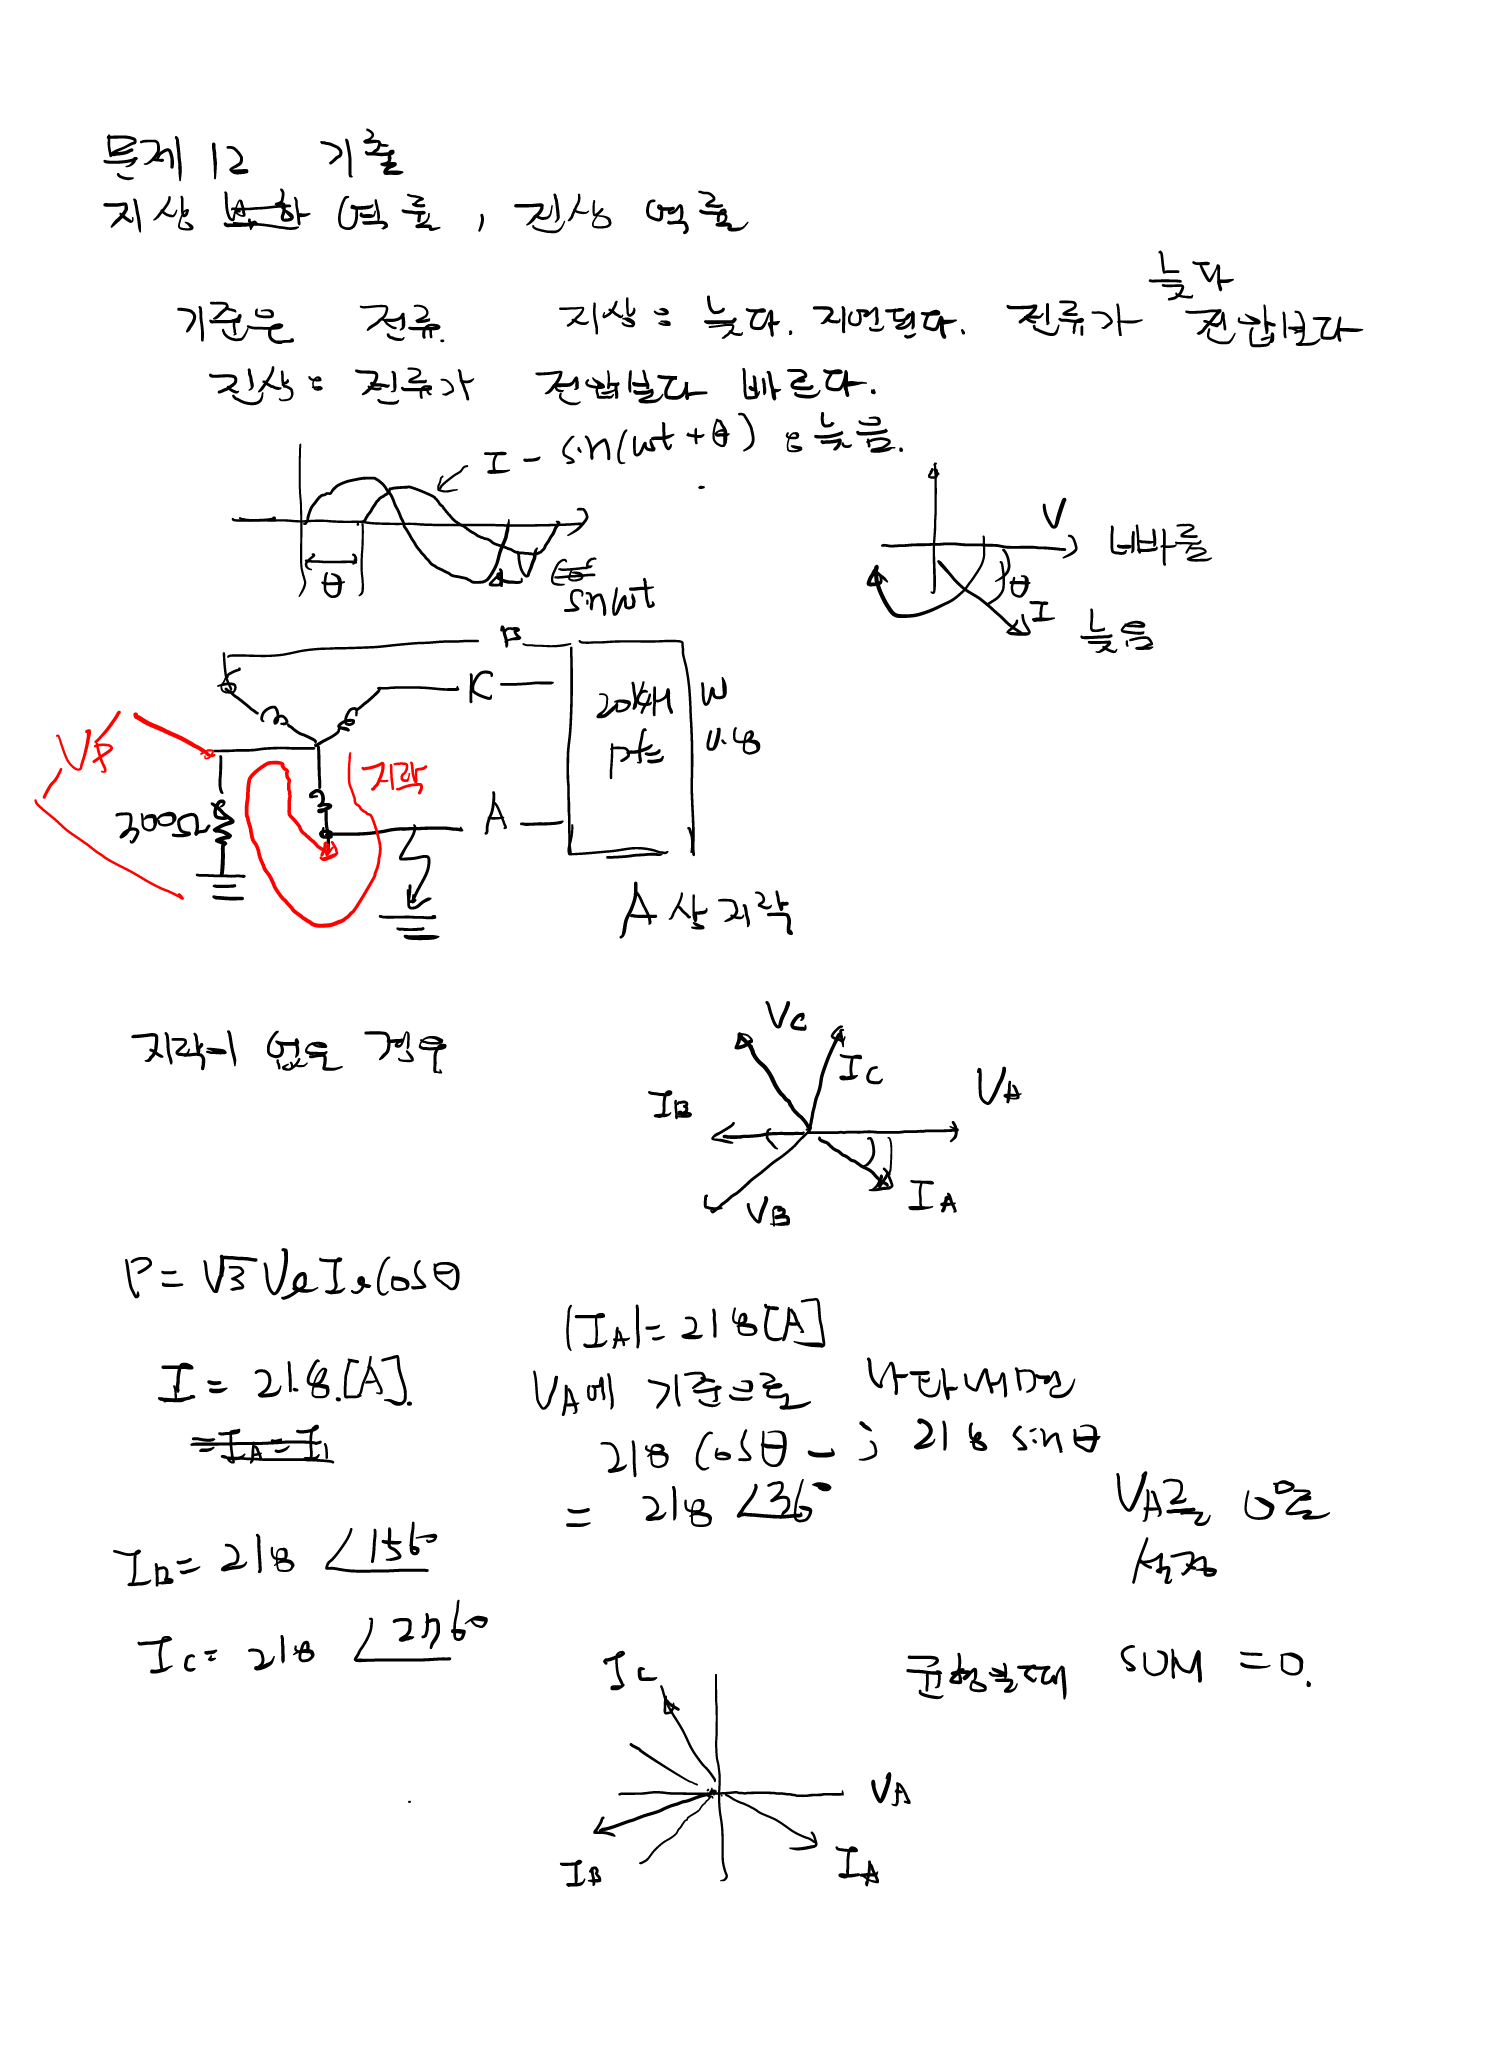 문제 12 기출
지상 부하 역률, 진상 역률
늦다
기준은 전류. 지상 : 늦다. 지연된다. 전류가 전압보다
진상 : 전류가 전압보다 빠르다.
I - sin(wt + θ) : 늦음.
V
더빠름
θ
θ
V
sinwt
I
늦음
B
C
20kW
pf=
W
0.8
VP
지락
300Ω
A
A상지락
지락이 없을 경우
VC
IC
VA
IB
IA
VB
P = √3 Vl Il Cosθ
|IA| = 218[A]
I = 218.[A].
VA에 기준으로 나타내면
= IA = I1
218 Cosθ - j 218 sinθ
= 218 ∠36°
VA를 0°로
설정
IB = 218 ∠156°
IC = 218 ∠276°
IC
균형일때 SUM = 0.
VA
IB
IA